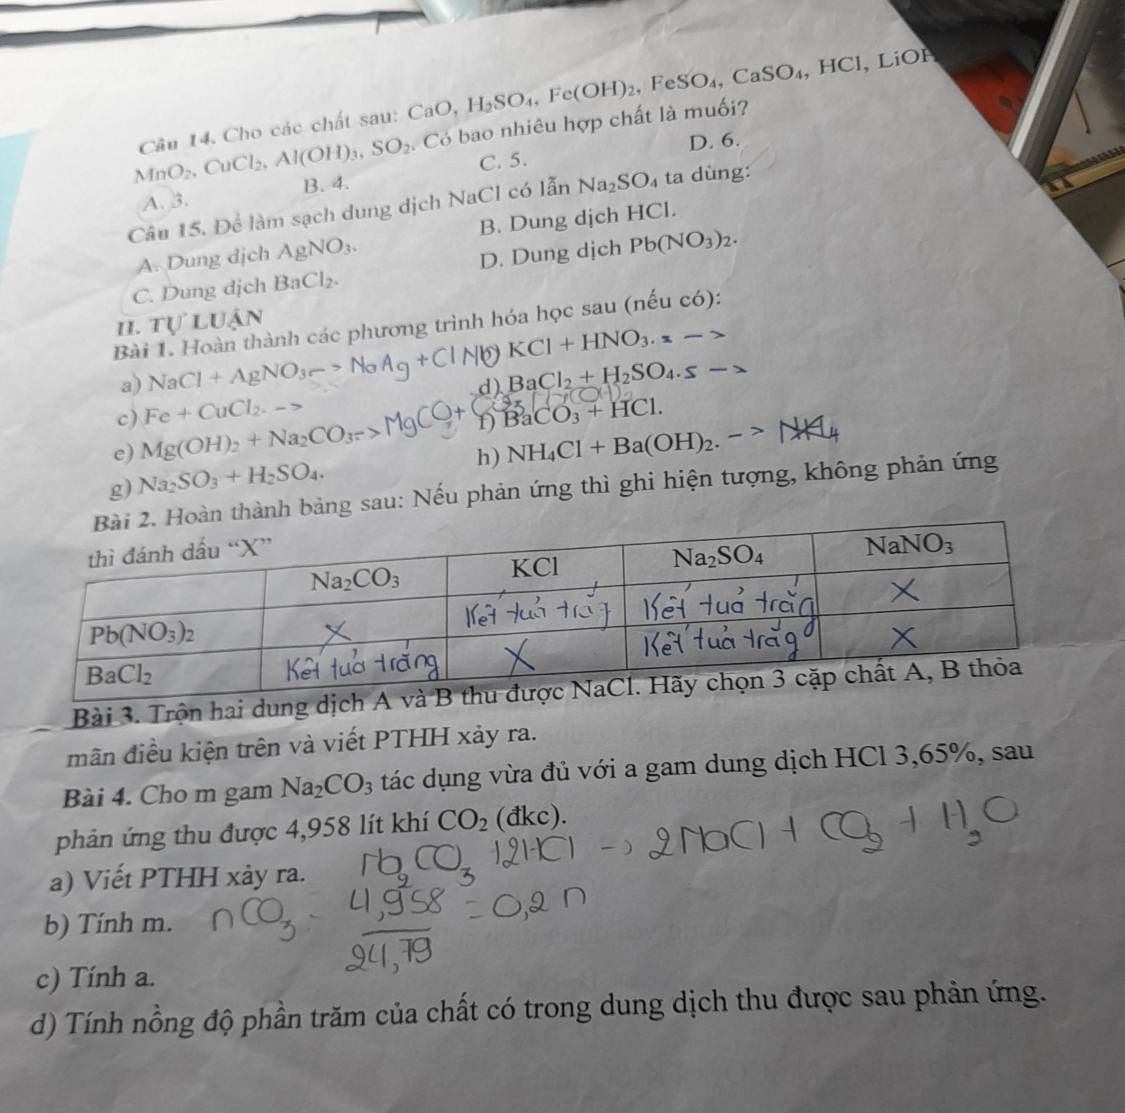 Câu 14. Cho các chất sau: CaO, H₂SO₄, Fe(OH)₂, FeSO₄, CaSO₄, HCl, LiOH
MnO₂, CuCl₂, Al(OH)₃, SO₂. Có bao nhiêu hợp chất là muối?
A. 3. B. 4. C. 5. D. 6.
Câu 15. Để làm sạch dung dịch NaCl có lẫn Na₂SO₄ ta dùng:
A. Dung dịch AgNO₃. B. Dung dịch HCl.
C. Dung dịch BaCl₂. D. Dung dịch Pb(NO₃)₂.
II. TỰ LUẬN
Bài 1. Hoàn thành các phương trình hóa học sau (nếu có):
a) NaCl + AgNO₃ -> NaAg + Cl N b) KCl + HNO₃. x ->
c) Fe + CuCl₂. -> d) BaCl₂ + H₂SO₄. s ->
e) Mg(OH)₂ + Na₂CO₃ -> MgCO₃ + f) BaCO₃ + HCl.
g) Na₂SO₃ + H₂SO₄. h) NH₄Cl + Ba(OH)₂. ->
Bài 2. Hoàn thành bảng sau: Nếu phản ứng thì ghi hiện tượng, không phản ứng
thì đánh dấu “X”
Na₂CO₃ KCl Na₂SO₄ NaNO₃
Pb(NO₃)₂ X Kết tuả trắg Kết tuả trắg X
BaCl₂ Kết tuả trắng X Kết tuả trắg X
Bài 3. Trộn hai dung dịch A và B thu được NaCl. Hãy chọn 3 cặp chất A, B thỏa
mãn điều kiện trên và viết PTHH xảy ra.
Bài 4. Cho m gam Na₂CO₃ tác dụng vừa đủ với a gam dung dịch HCl 3,65%, sau
phản ứng thu được 4,958 lít khí CO₂ (đkc).
a) Viết PTHH xảy ra. Na₂CO₃ + 2HCl -> 2NaCl + CO₂ + H₂O
b) Tính m. nCO₃ = 4,958 = 0,2 n
24,79
c) Tính a.
d) Tính nồng độ phần trăm của chất có trong dung dịch thu được sau phản ứng.